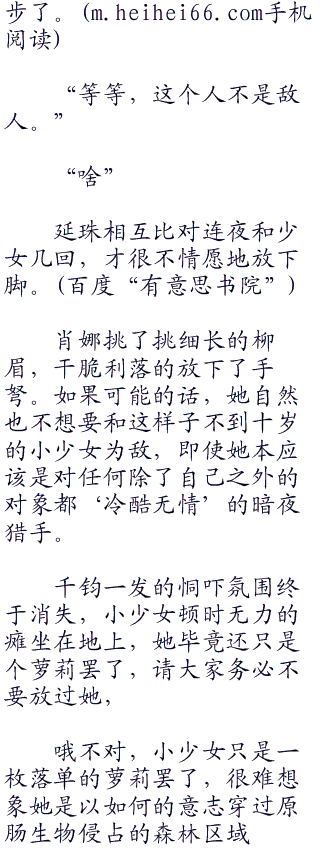 步了。(m.heihei66.com手机
阅读)
“等等，这个人不是敌
人。”
“啥”
延珠相互比对连夜和少
女几回，才很不情愿地放下
脚。(百度“有意思书院”)
肖娜挑了挑细长的柳
眉，干脆利落的放下了手
弩。如果可能的话，她自然
也不想要和这样子不到十岁
的小少女为敌，即使她本应
该是对任何除了自己之外的
对象都‘冷酷无情’的暗夜
猎手。
千钧一发的恫吓氛围终
于消失，小少女顿时无力的
瘫坐在地上，她毕竟还只是
个萝莉罢了，请大家务必不
要放过她，
哦不对，小少女只是一
枚落单的萝莉罢了，很难想
象她是以如何的意志穿过原
肠生物侵占的森林区域